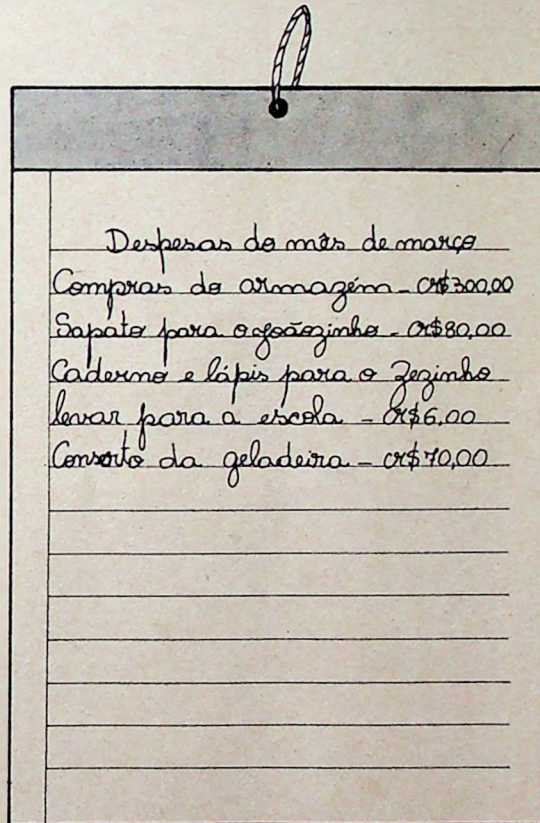 Despesas do mês de março
Compras do armazém - Cr$300,00
Sapato para o Joãozinho - Cr$80,00
Caderno e lápis para o Zezinho
levar para a escola - Cr$6,00
Conserto da geladeira - Cr$70,00